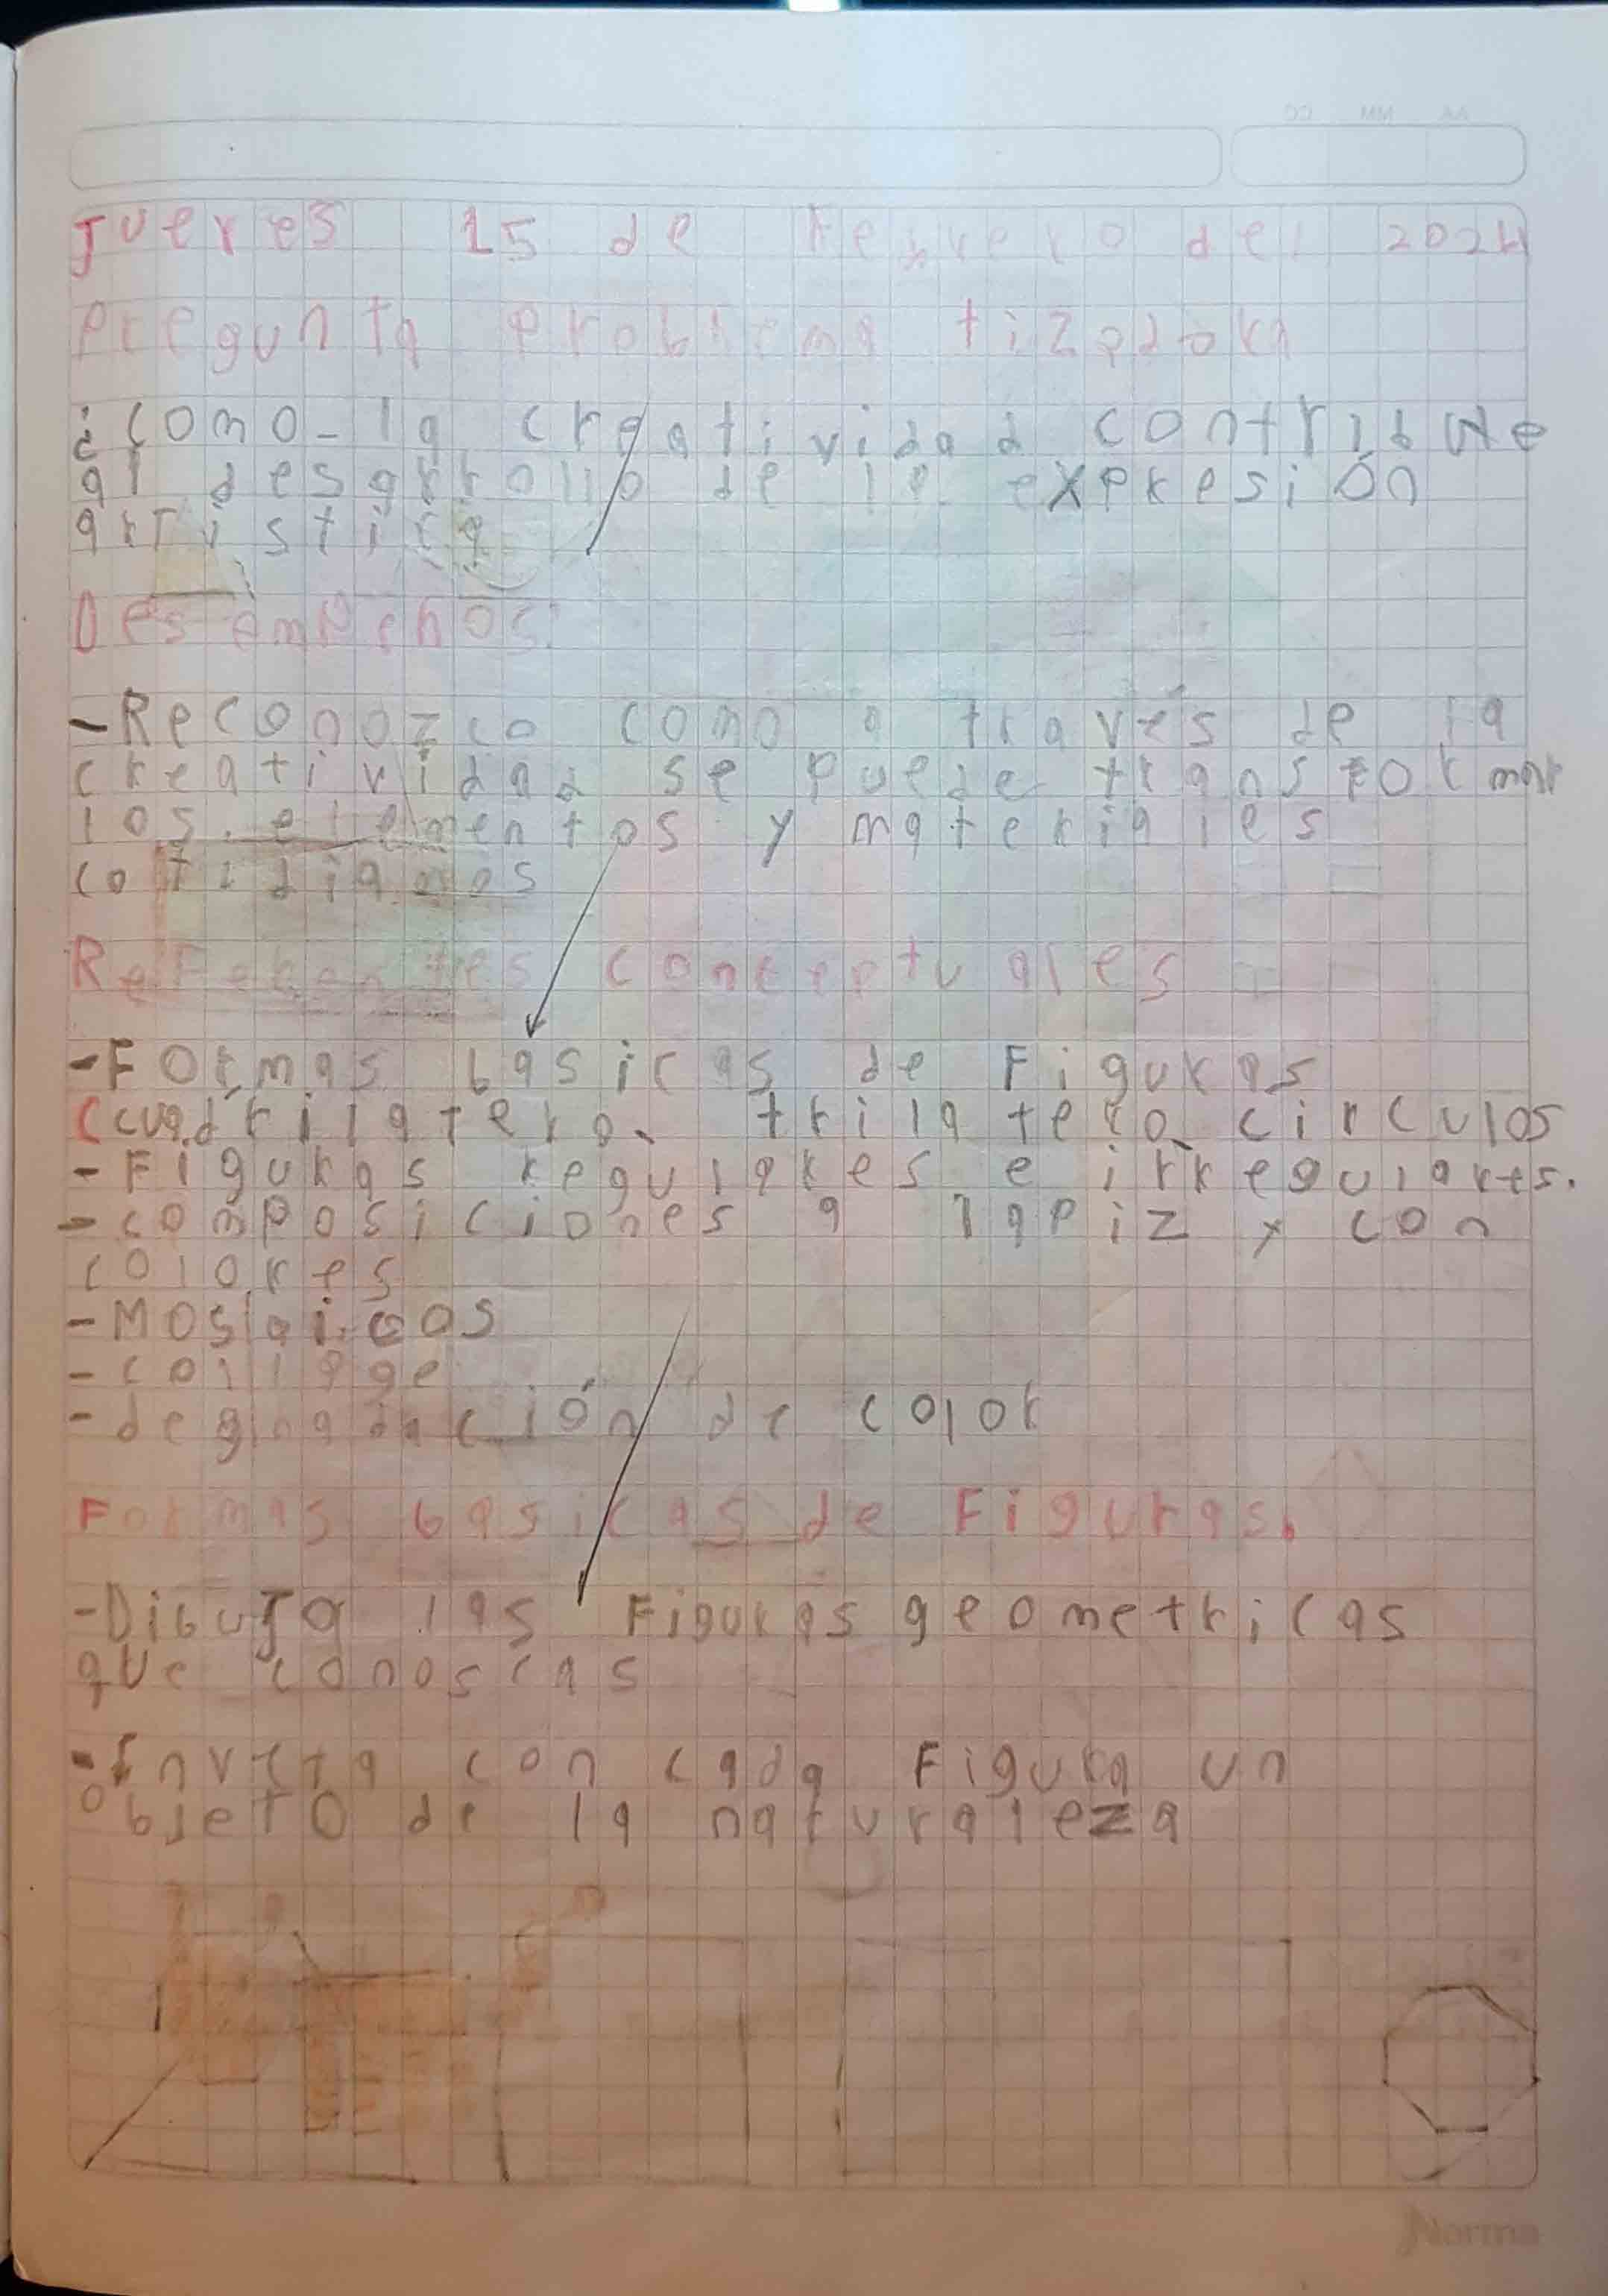 Jueves 15 de Febrero del 2024
Pregunta problema tizadora
¿como la creatividad contribuye
al desarrollo de la expresión
artistica
Desempeños:
-Reconozco como a través de la
creatividad se puede transformar
los elementos y materiales
cotidianos
Referentes conceptuales
-Formas basicas de Figuras
(cuadrilatero, trilatero, circulos
-Figuras regulares e irregulares.
-composiciones a lapiz y con
colores
-Mosaicos
-collage
-degradación de color
Formas basicas de Figuras.
-Dibuja las Figuras geometricas
que conoscas
-Inveta con cada Figura un
objeto de la naturaleza
Norma